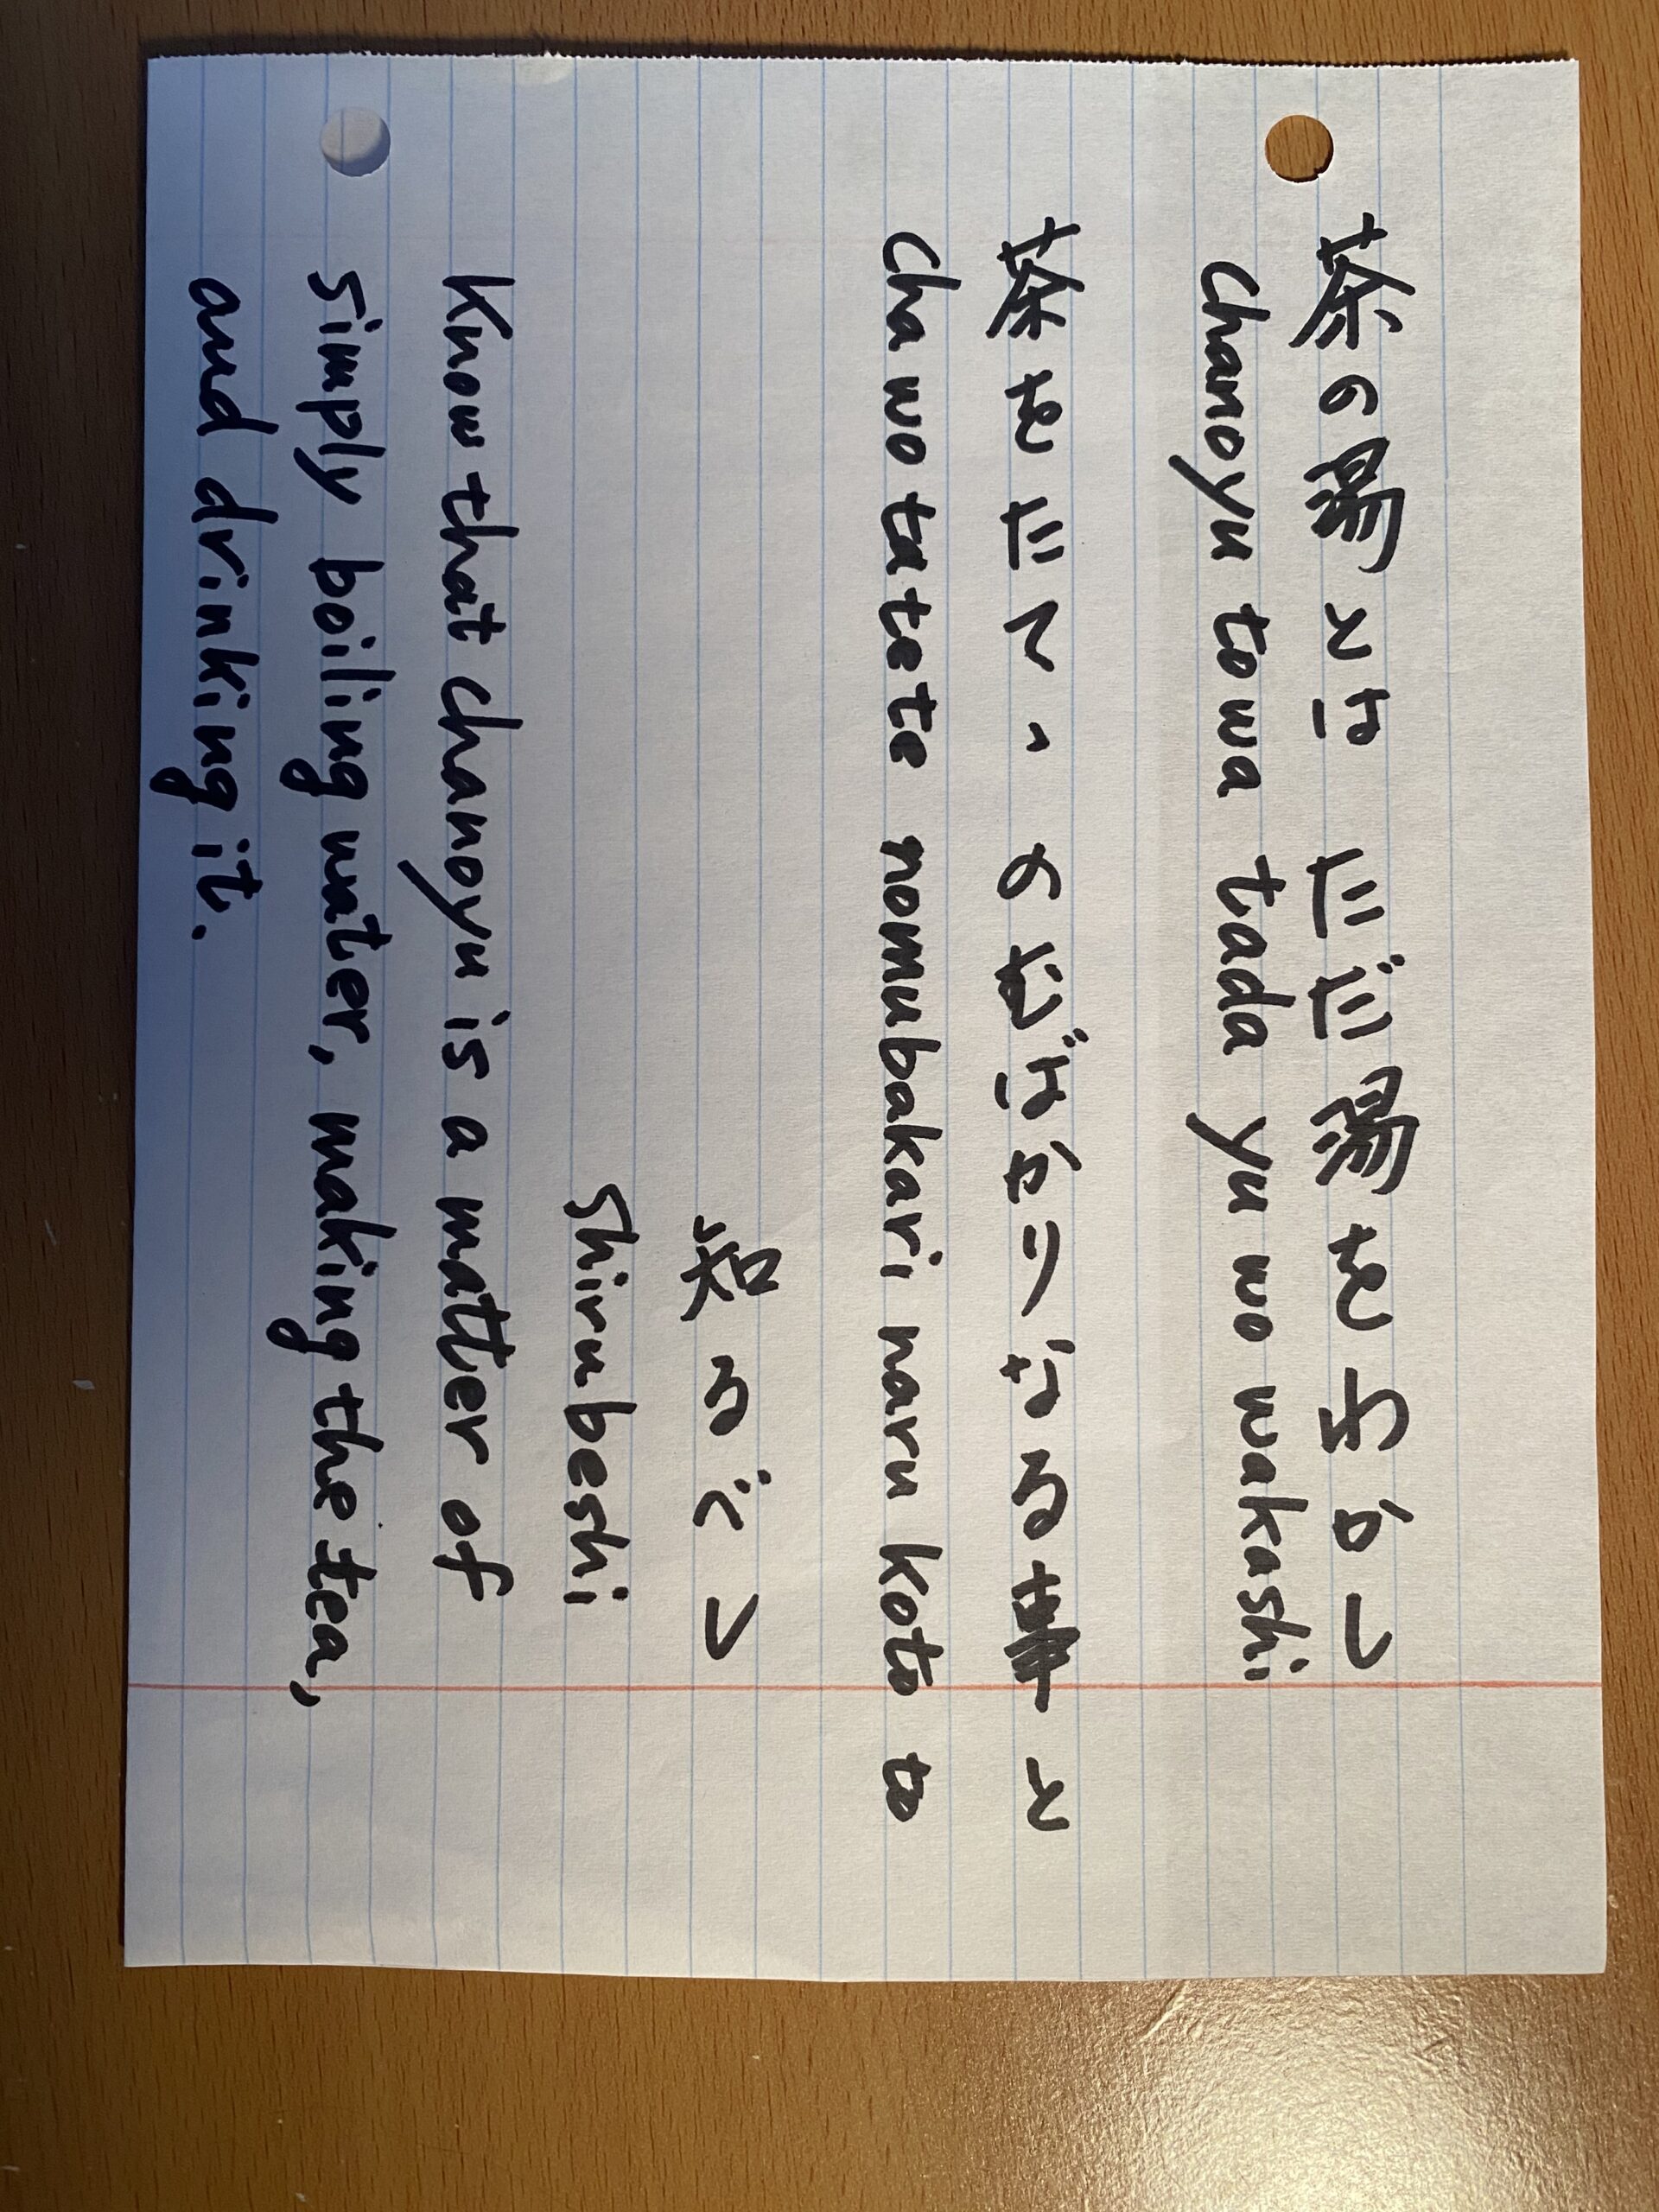 茶の湯とは ただ湯をわかし
Chanoyu towa tada yu wo wakashi
茶をたて、のむばかりなる事と
Cha wo tatete nomubakari naru koto to
知るべし
Shirubeshi
Know that chanoyu is a matter of
simply boiling water, making the tea,
and drinking it.